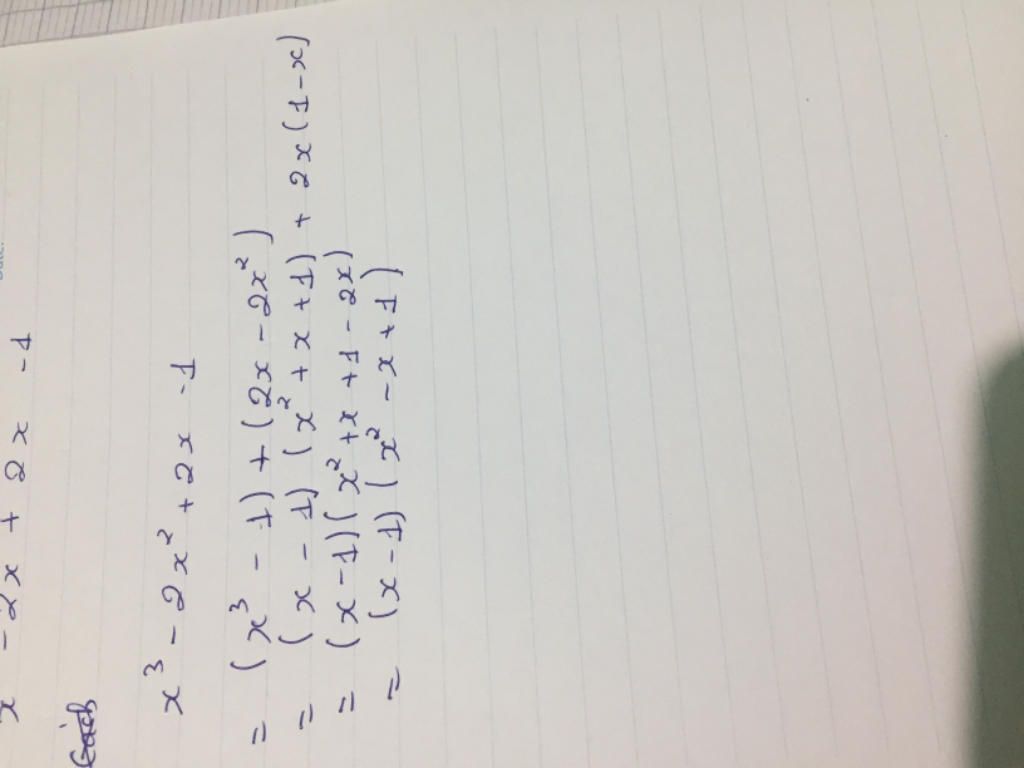 - 2x + 2x - 1
Giải
x³ - 2x² + 2x - 1
= (x³ - 1) + (2x - 2x²)
= (x - 1) (x² + x + 1) + 2x (1 - x)
= (x - 1) (x² + x + 1 - 2x)
= (x - 1) (x² - x + 1)